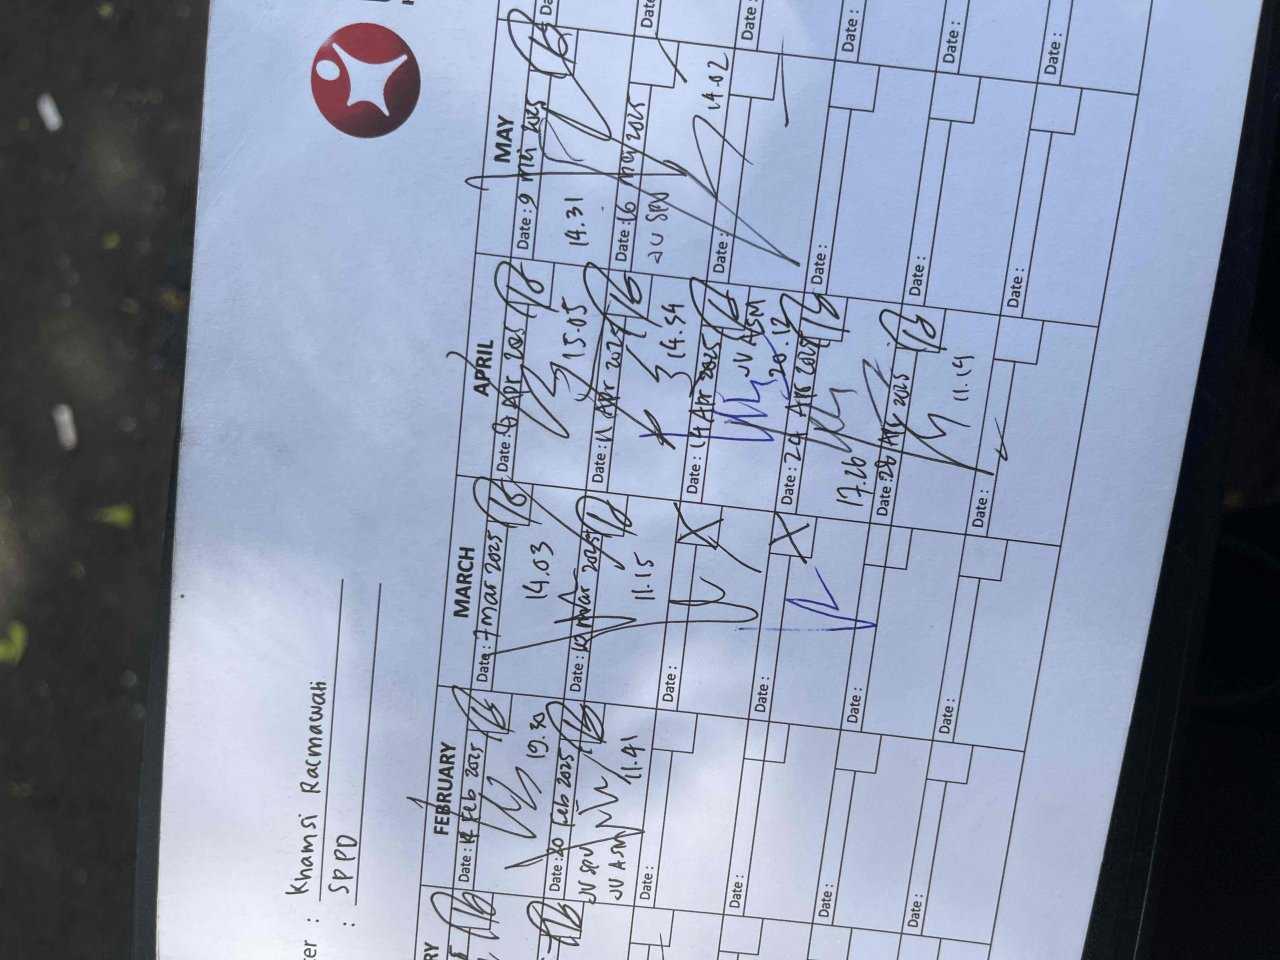 er : Khamsi Racmawati
: SPPD
RY
FEBRUARY
Date : 12 Feb 2025
19.30
Date : 20 Feb 2025
JV SPV
JV ASM
11.41
Date :
Date :
Date :
Date :
MARCH
Date : 7 Mar 2025
14.03
Date : 10 Mar 2025
11.15
Date :
Date :
Date :
Date :
APRIL
Date : Apr 2025
15.05
Date : 11 Apr 2025
14.34
Date : 14 Apr 2025
JV ASM
20.12
Date : 24 Apr 2025
17.26
Date : 28 2025
11.14
Date :
MAY
Date : 9 Mei 2025
14.31
Date : 16 May 2025
JV SPV
14.02
Date :
Date :
Date :
Date :
Date :
Date :
Date :
Date :
Date :